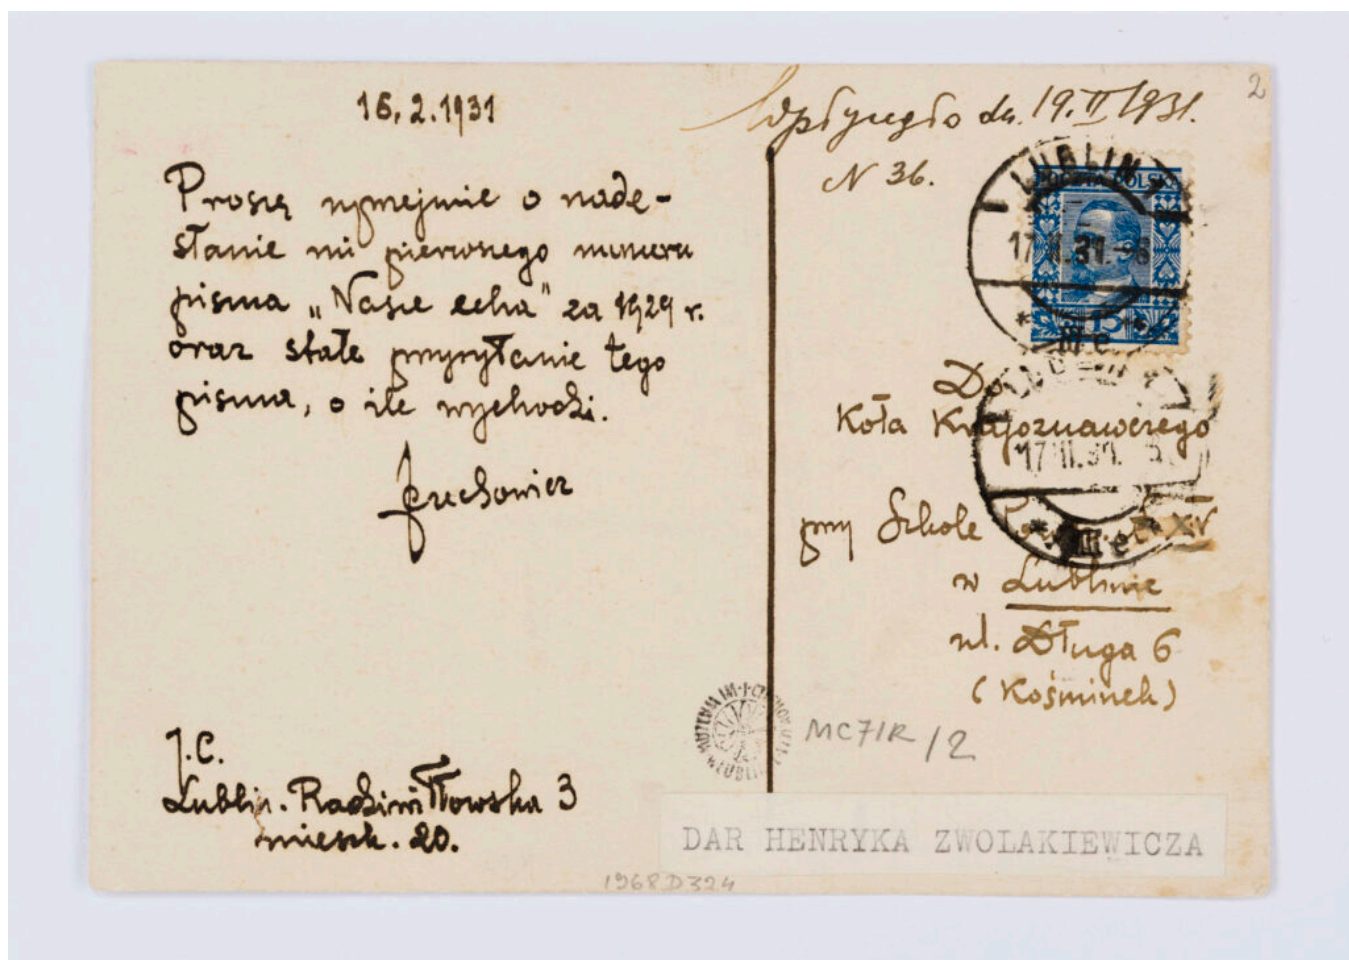 16.2.1931
Proszę uprzejmie o nade-
słanie mi pierwszego numeru
pisma „Nasze echa" za 1929 r.
oraz stałe przysyłanie tego
pisma, o ile wychodzi.
JCzechowicz
J.C.
Lublin. Radziwiłłowska 3
mieszk. 20.
2
Wpłynęło dn. 19.II 1931.
N 36.
LUBLIN 1
17.II.31.
15
Do
Koła Krajoznawczego
17 II.31.
przy Szkole XV
w Lublinie
ul. Długa 6
(Kośminek)
MC7/R/2
DAR HENRYKA ZWOLAKIEWICZA
1968 D324